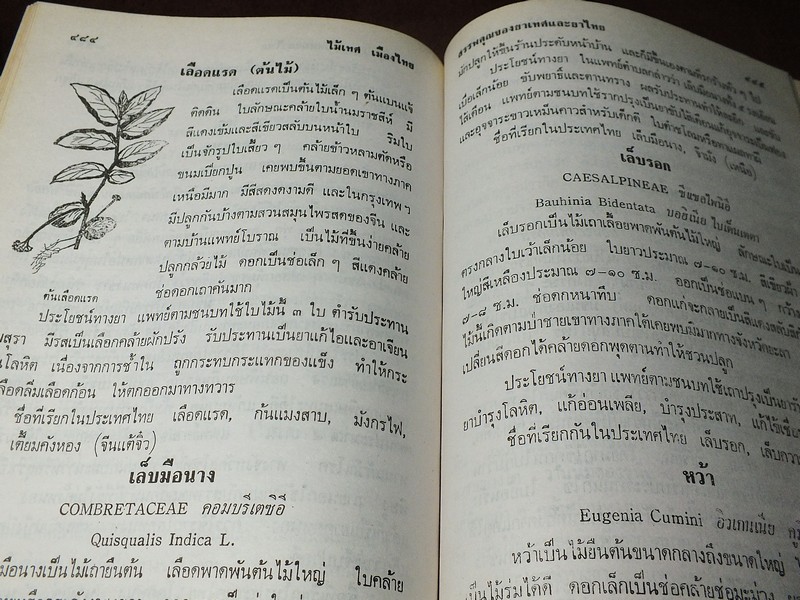 ๔๔๔
ไม้เทศ เมืองไทย
เลือดแรด (ต้นไม้)
เลือดแรดเป็นต้นไม้เล็ก ๆ ต้นแบนแจ้
ติดดิน ใบลักษณะคล้ายใบน้ำนมราชสีห์ มี
สีแดงเข้มและสีเขียวสลับบนหน้าใบ ริมใบ
เป็นจักรูปใบเสี้ยว ๆ คล้ายข้าวหลามตัดหรือ
ขนมเปียกปูน เคยพบขึ้นตามยอดเขาทางภาค
เหนือมีมาก มีสีสดงดงามดี และในกรุงเทพ ๆ
มีปลูกกันบ้างตามสวนสมุนไพรสดของจีน และ
ตามบ้านแพทย์โบราณ เป็นไม้ที่ขึ้นง่ายคล้าย
ปลูกกล้วยไม้ ดอกเป็นช่อเล็ก ๆ สีแดงคล้าย
ช่อดอกเถาคันมาก
ต้นเลือดแรด
ประโยชน์ทางยา แพทย์ตามชนบทใช้ใบไม้นี้ ๓ ใบ ตำรับประทาน
สุรา มีรสเป็นเลือกคล้ายผักปรัง รับประทานเป็นยาแก้ไอและอาเจียน
โลหิต เนื่องจากการช้ำใน ถูกกระทบกระแทกของแข็ง ทำให้กระ
เลือดลิ่มเลือดก้อน ให้ตกออกมาทางทวาร
ชื่อที่เรียกในประเทศไทย เลือดแรด, ก้นแมงสาบ, มังกรไฟ,
เตี้ยมคังหอง (จีนแต้จิ๋ว)
เล็บมือนาง
COMBRETACEAE คอมบรีเตซิอี
Quisqualis Indica L.
มือนางเป็นไม้เถายืนต้น เลือดพาดพันต้นไม้ใหญ่ ใบคล้าย
สรรพคุณของยาเทศและยาไทย
๔๔๕
นักปลูกให้ขึ้นร้านประดับหน้าบ้าน
ประโยชน์ทางยา ในแพทย์ตำบอกกล่าวว่า
เบื่อเล็กน้อย ขับพยาธิและตานทราง
ไส้เดือน แพทย์ตามชนบทใช้รากปรุงเป็นยา
และอุจจาระขาวเหม็นคาวสำหรับเด็กดี
ชื่อที่เรียกในประเทศไทย เล็บมือนาง,
เล็บรอก
CAESALPINEAE ซีแซลไพนิอี
Bauhinia Bidentata บอฮิเนีย ไบเด็นเตตา
เล็บรอกเป็นไม้เถาเลื้อยพาดพันต้นไม้ใหญ่ ลักษณะใบเป็น
ตรงกลางใบเว้าเล็กน้อย ใบยาวประมาณ ๗-๑๐ ซ.ม. สีเขียว
ใหญ่สีเหลืองประมาณ ๗-๑๐ ซ.ม. ออกเป็นช่อแบน ๆ กว้าง
๗-๘ ซ.ม. ช่อดกหนาทึบ ดอกแก่จะกลายเป็นสีแดงสลับ
ไม้นี้เกิดตามป่าชายเขาทางภาคใต้เคยพบมีมากทางจังหวัดยะลา
เปลี่ยนสีดอกได้คล้ายดอกพุดตานทำให้ชวนปลูก
ประโยชน์ทางยา แพทย์ตามชนบทใช้เถาปรุงเป็นยา
ยาบำรุงโลหิต, แก้อ่อนเพลีย, บำรุงประสาท,
ชื่อที่เรียกกันในประเทศไทย เล็บรอก,
หว้า
Eugenia Cumini ยิวเกนเนีย
หว้าเป็นไม้ยืนต้นขนาดกลางถึงขนาดใหญ่
เป็นไม้ร่มได้ดี ดอกเล็กเป็นช่อคล้ายช่อมะม่วง